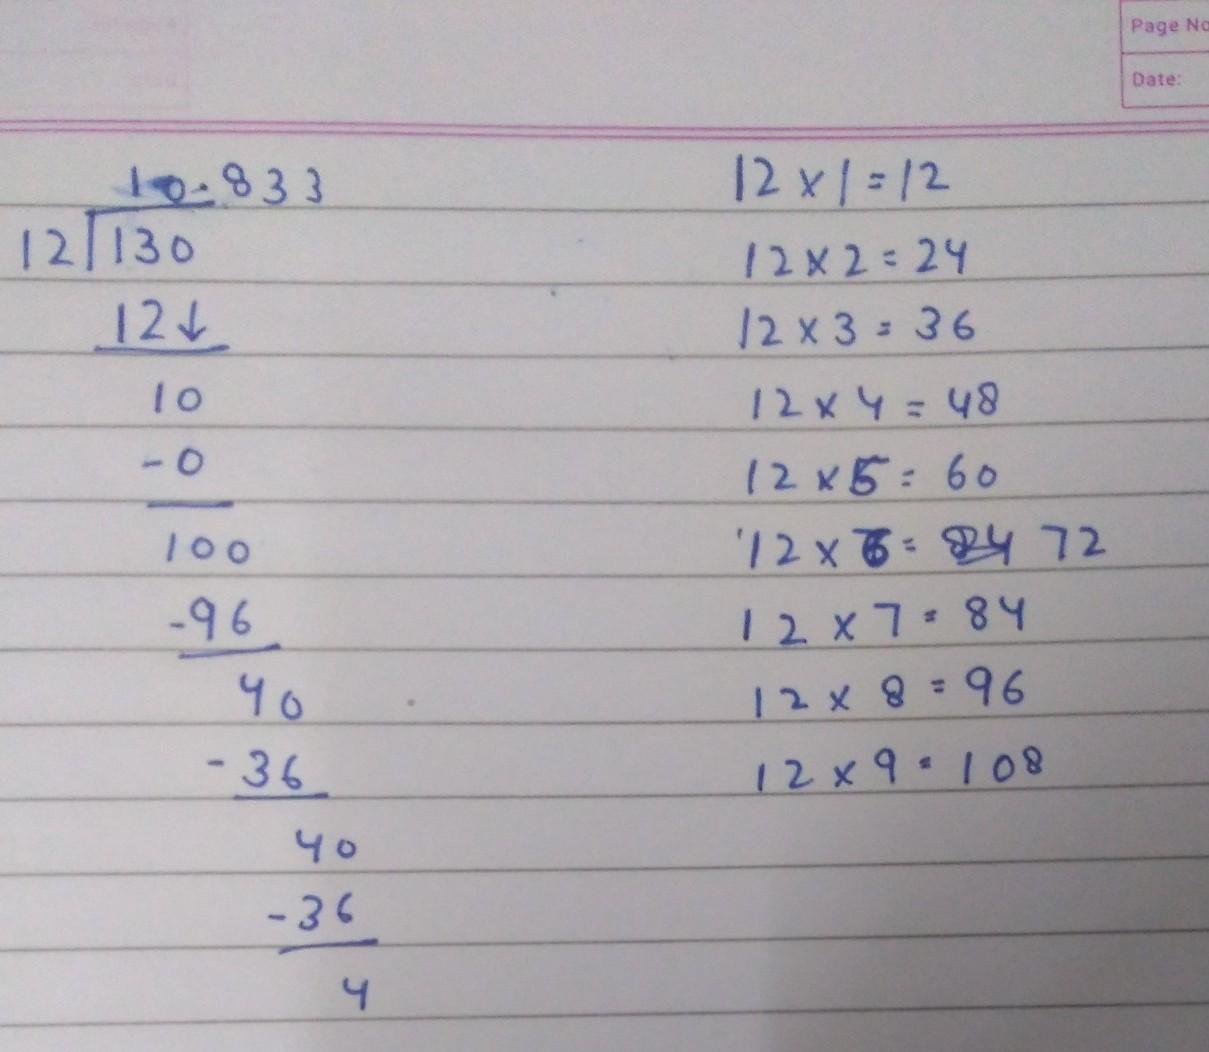 Page No
Date:
10.833
12 130
12↓
10
-0
100
-96
40
-36
40
-36
4
12 x 1 = 12
12 x 2 = 24
12 x 3 = 36
12 x 4 = 48
12 x 5 = 60
12 x 6 = 84 72
12 x 7 = 84
12 x 8 = 96
12 x 9 = 108